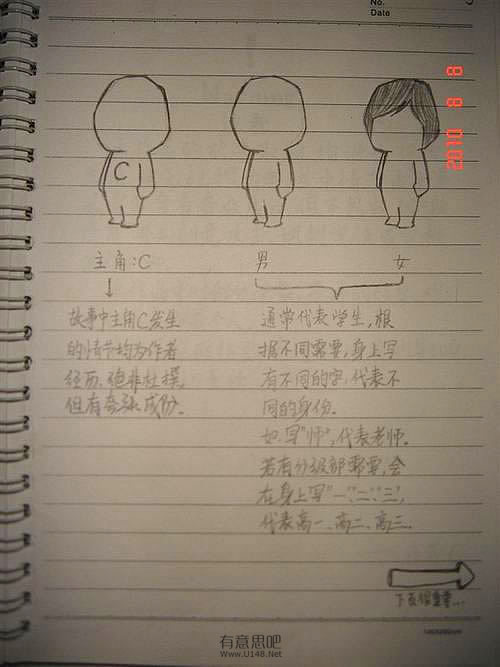 No.
Date
2010 8 8
C
主角:C
男
女
↓
故事中主角C发生
的情节均为作者
经历,绝非杜撰,
但有夸张成份。
通常代表学生,根
据不同需要,身上写
有不同的字,代表不
同的身份。
如写"师",代表老师。
若有分级部需要,会
在身上写"一""二""三",
代表高一、高二、高三.
下页很重要...
有意思吧
Www.U148.Net